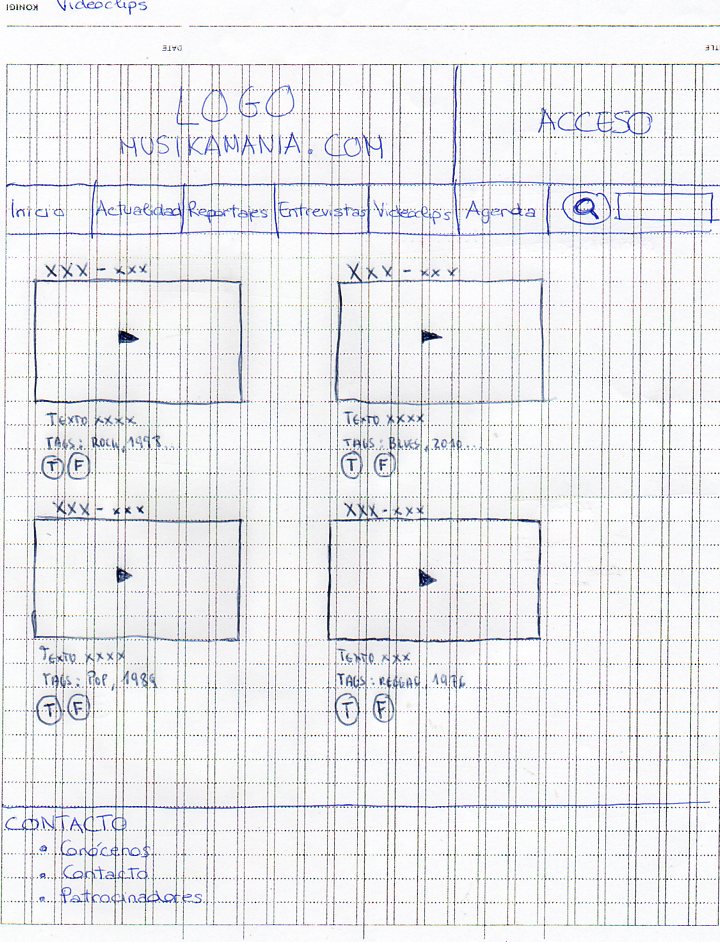 KONIGI
Videoclips
DATE
LOGO
MUSIKAMANIA.COM
ACCESO
Inicio
Actualidad
Reportajes
Entrevistas
Videoclips
Agenda
XXX - xxx
XXX - xxx
TEXTO XXXX
TAGS: ROCK, 1998...
T F
TEXTO XXXX
TAGS: BLUES, 2010...
T F
XXX - xxx
XXX - xxx
TEXTO XXXX
TAGS: POP, 1989
T F
TEXTO XXX
TAGS: REGGAE, 1976
T F
CONTACTO
• Conócenos
• Contacto
• Patrocinadores